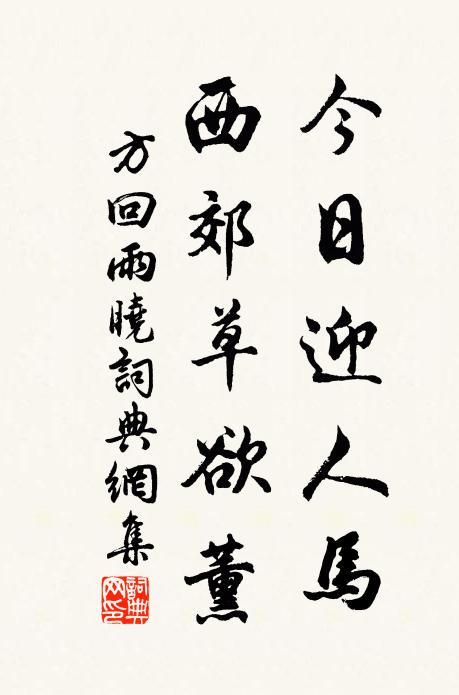 今日迎人馬
西郊草欲薰
方回雨曉詞典網集
詞典網印